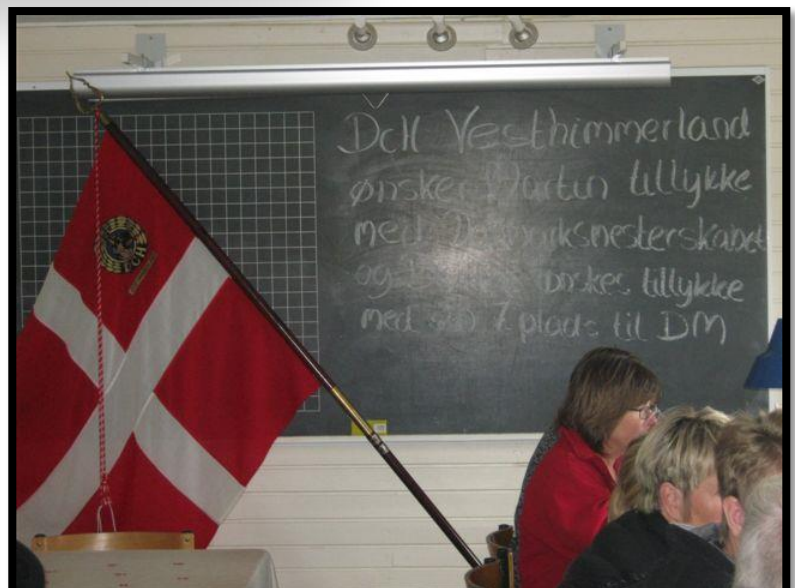 DcH Vesthimmerland
ønsker Martin tillykke
med Danmarksmesterskabet
og ønskes tillykke
med sin 7 plads til DM
DCH